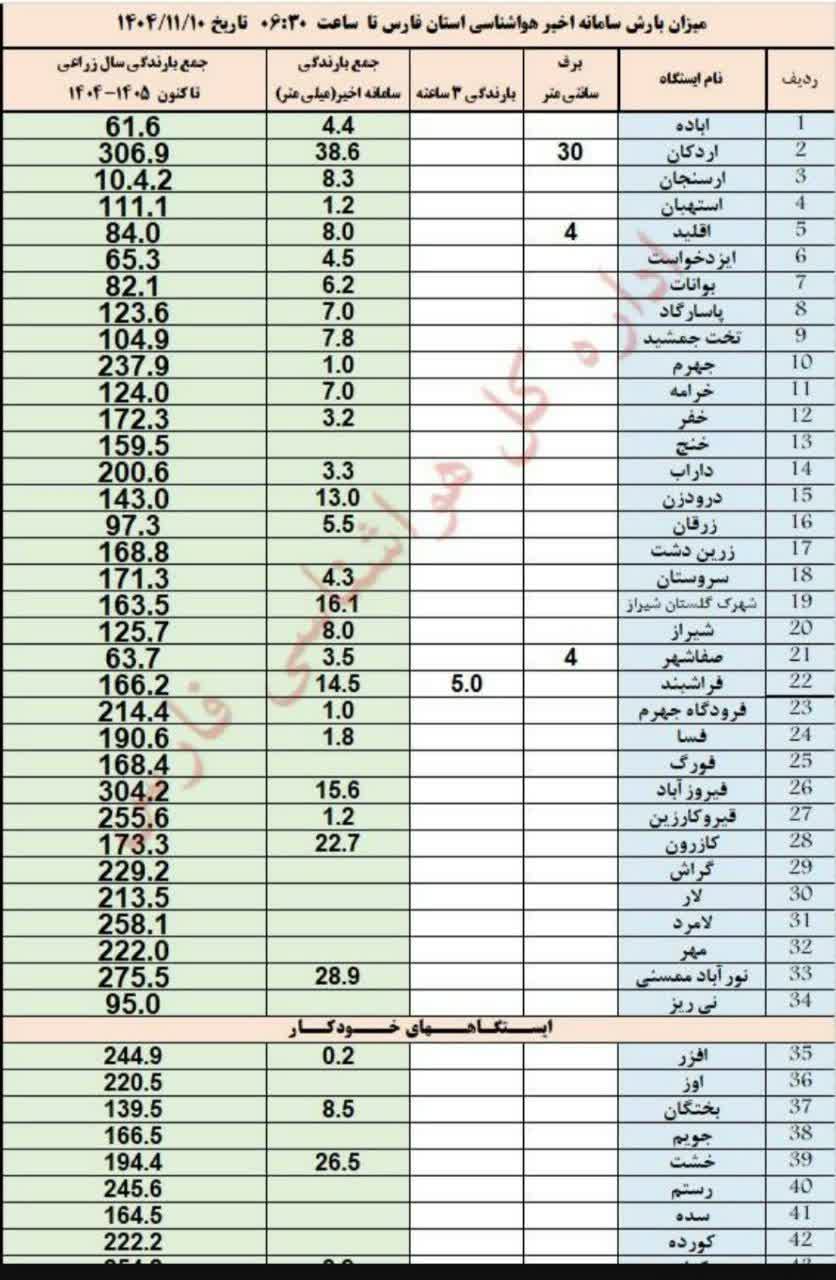 میزان بارش سامانه اخیر هواشناسی استان فارس تا ساعت ۰۶:۳۰ تاریخ ۱۴۰۴/۱۱/۱۰
ردیف نام ایستگاه برف سانتی متر بارندگی ۳ ساعته جمع بارندگی سامانه اخیر(میلی متر) جمع بارندگی سال زراعی تا کنون ۱۴۰۵-۱۴۰۴
1 اباده 4.4 61.6
2 اردکان 30 38.6 306.9
3 ارسنجان 8.3 10.4.2
4 استهبان 1.2 111.1
5 اقلید 4 8.0 84.0
6 ایزدخواست 4.5 65.3
7 بوانات 6.2 82.1
8 پاسارگاد 7.0 123.6
9 تخت جمشید 7.8 104.9
10 جهرم 1.0 237.9
11 خرامه 7.0 124.0
12 خفر 3.2 172.3
13 خنج 159.5
14 داراب 3.3 200.6
15 درودزن 13.0 143.0
16 زرقان 5.5 97.3
17 زرین دشت 168.8
18 سروستان 4.3 171.3
19 شهرک گلستان شیراز 16.1 163.5
20 شیراز 8.0 125.7
21 صفاشهر 4 3.5 63.7
22 فراشبند 5.0 14.5 166.2
23 فرودگاه جهرم 1.0 214.4
24 فسا 1.8 190.6
25 فورگ 168.4
26 فیروز آباد 15.6 304.2
27 قیروکارزین 1.2 255.6
28 کازرون 22.7 173.3
29 گراش 229.2
30 لار 213.5
31 لامرد 258.1
32 مهر 222.0
33 نور آباد ممسنی 28.9 275.5
34 نی ریز 95.0
ایستگاههای خودکار
35 افزر 0.2 244.9
36 اوز 220.5
37 بختگان 8.5 139.5
38 جویم 166.5
39 خشت 26.5 194.4
40 رستم 245.6
41 سده 164.5
42 کورده 222.2
اداره کل هواشناسی فارس